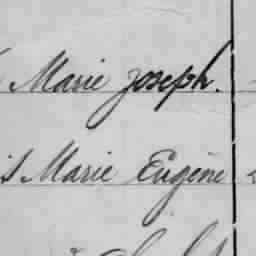 Marie Joseph.
Marie Eugène